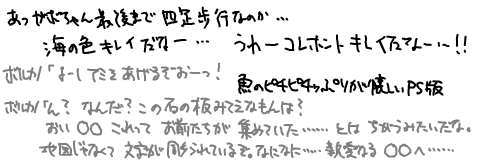 あっ かばちゃん最後まで四足歩行なのか…
海の色キレイだなー… うわーコレホントキレイだてんー…!!
ボルカノ「よーしてミミあげるぞおーっ!
魚のピチピチっぷりが嬉しいPS版
ボルカノん? なんだ?この石の板みてえなもんは?
おい ○○ これって お前たちが 集めていた…… とは ちがうみたいだな。
地図じゃなくて 文字が 彫られているぞ。なになに…… 親愛なる ○○へ……